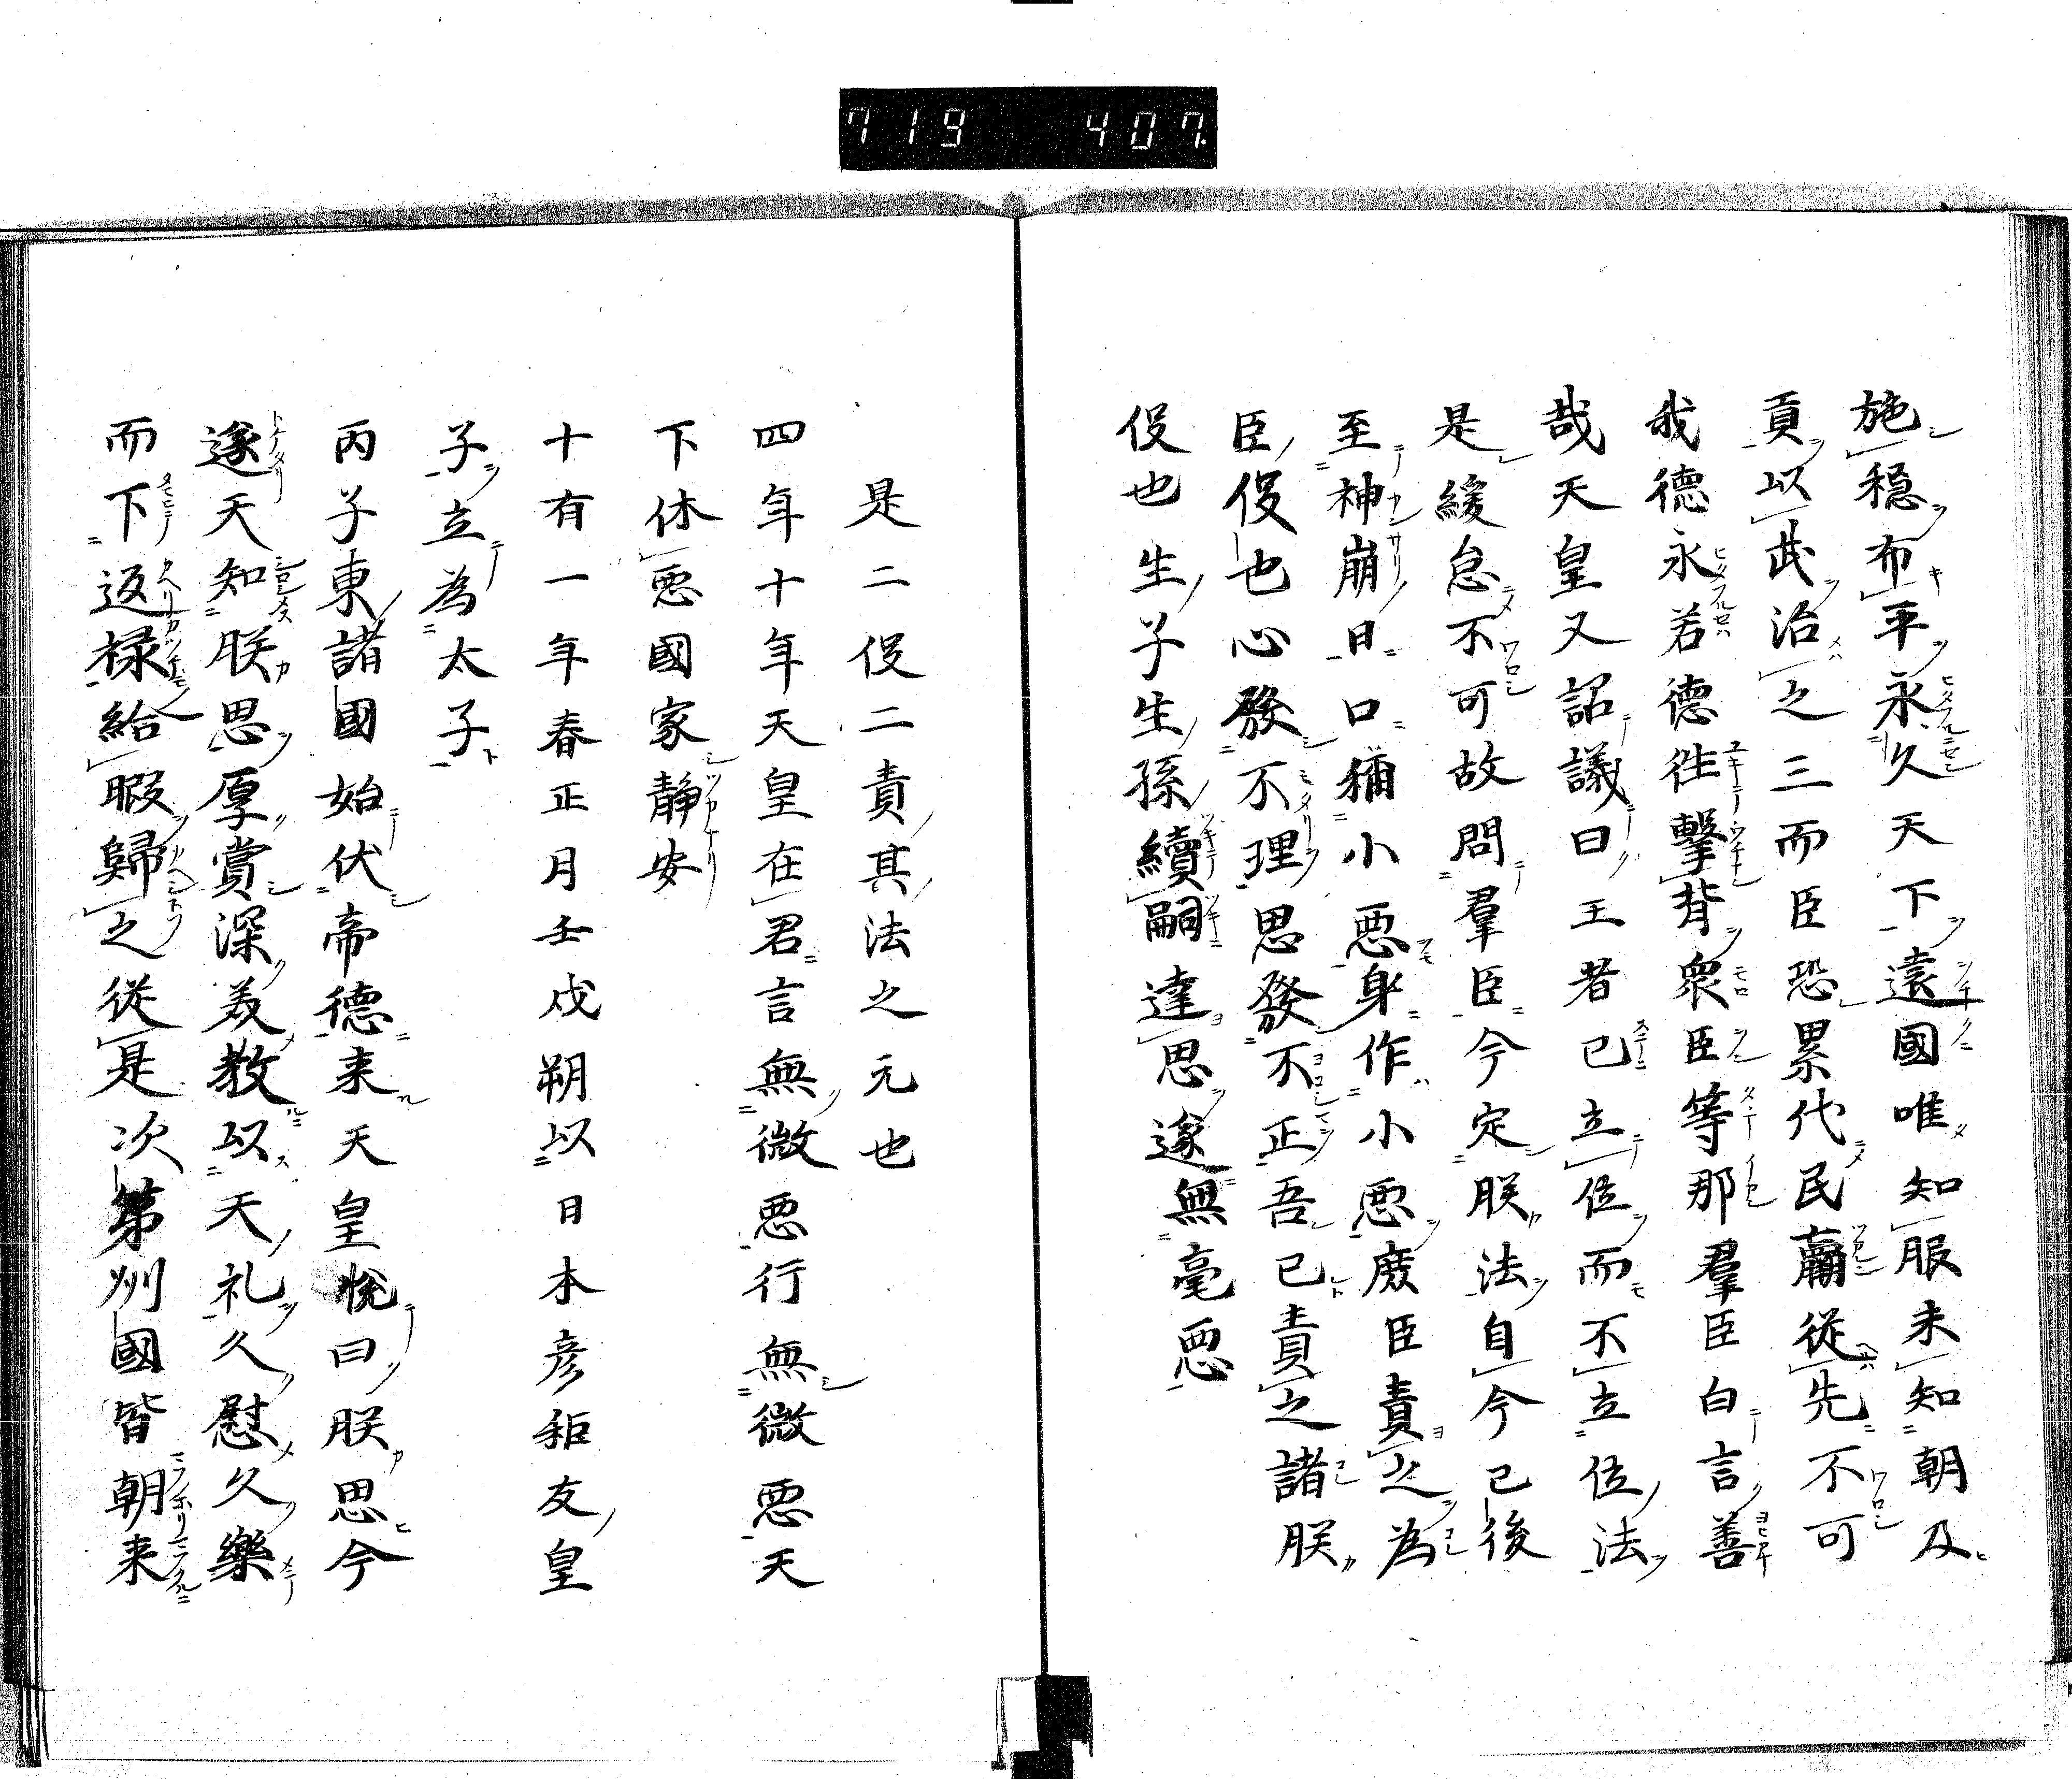 719 407.
施穏布平永久天下遠國唯知服未知朝及
貢以武治之三而臣恐累代民肅從先不可
我德永若德往擊背衆臣等那羣臣白言善
哉天皇又詔議曰王者已立位而不立位法
是緩怠不可故問羣臣今定朕法自今已後
至神崩日口獼小惡身作小惡廢臣責之為
臣役也心發不理思發不正吾已責之諸朕
役也生子生孫續嗣達思遂無毫惡
是二役二責其法之元也
四年十年天皇在君言無微惡行無微惡天
下休惡國家静安
十有一年春正月壬戌朔以日本彦秬友皇
子立為太子
丙子東諸國始伏帝德来天皇悅曰朕思今
遂天知朕思厚賞深羙教以天礼久慰久樂
而下返禄給暇歸之從是次第州國皆朝来